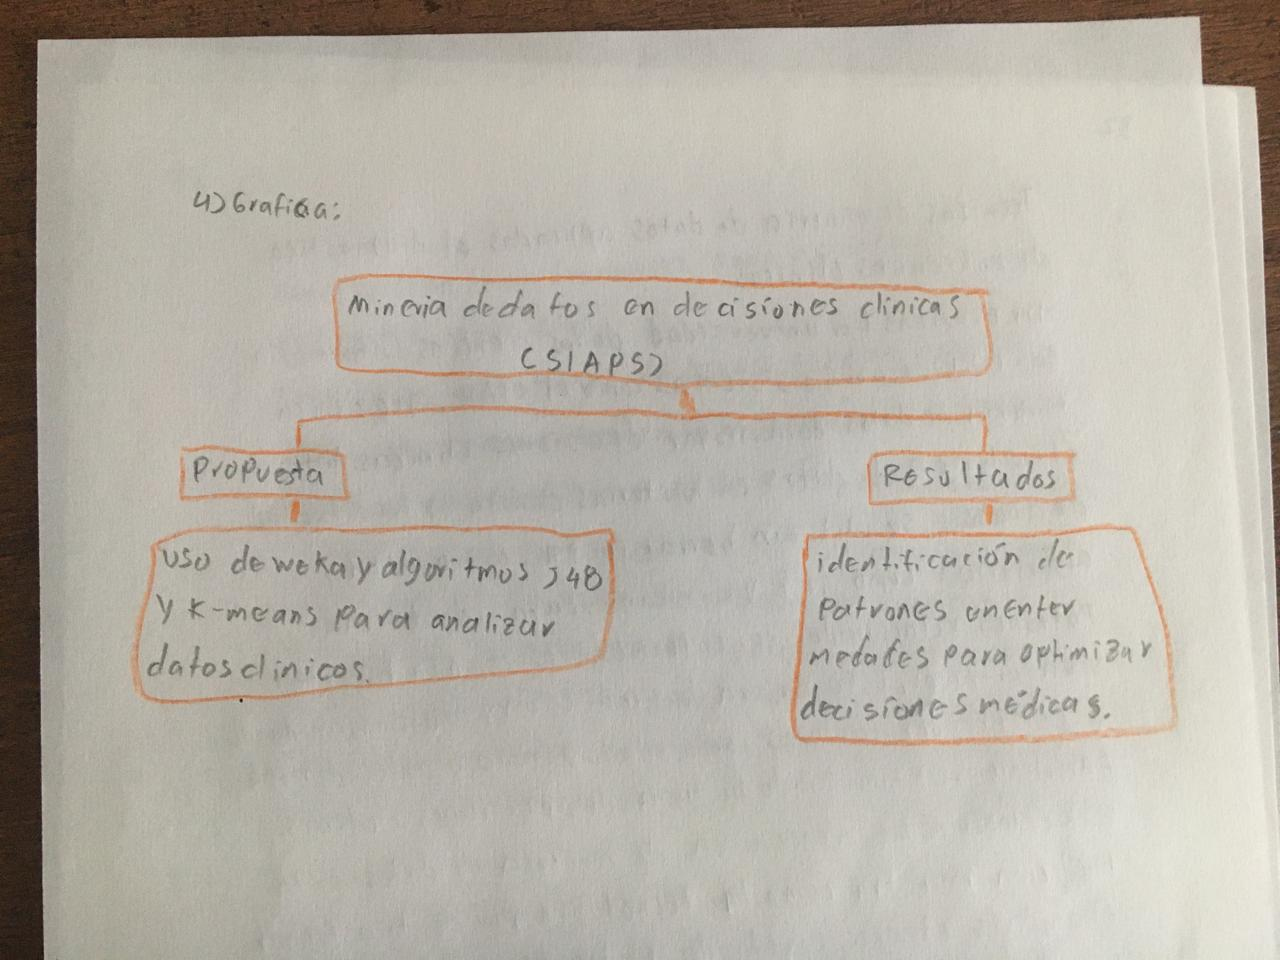 4) Grafica:
Mineria de datos en decisiones clinicas
(SIAPS)
Propuesta
Resultados
uso de weka y algoritmos J48
y K-means para analizar
datos clinicos.
identificación de
patrones en enfer
medades para optimizar
decisiones médicas.